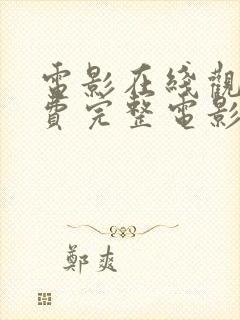 電影在綫觀
費完整電影
鄭爽